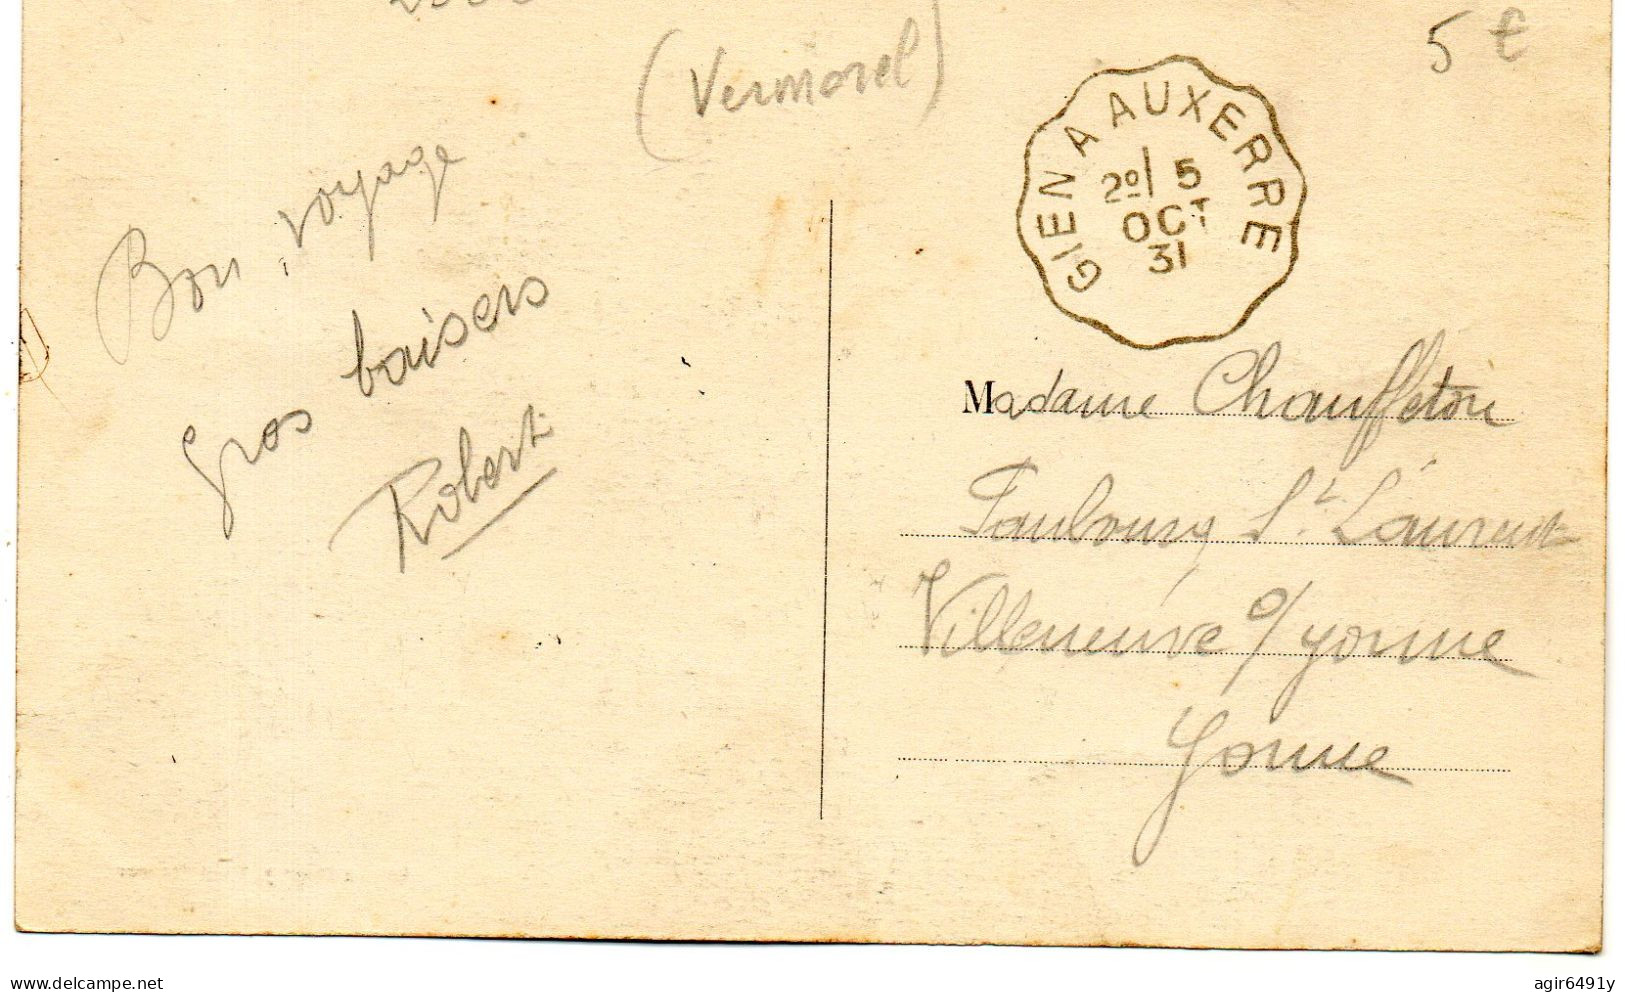 (Vermorel)
5 €
GIEN A AUXERRE
2º/ 5
OCT
31
Bon voyage
Gros baisers
Robert
Madame Chauffeton
Faubourg St Laurent
Villeneuve s/ yonne
Yonne
delcampe.net
agir6491y